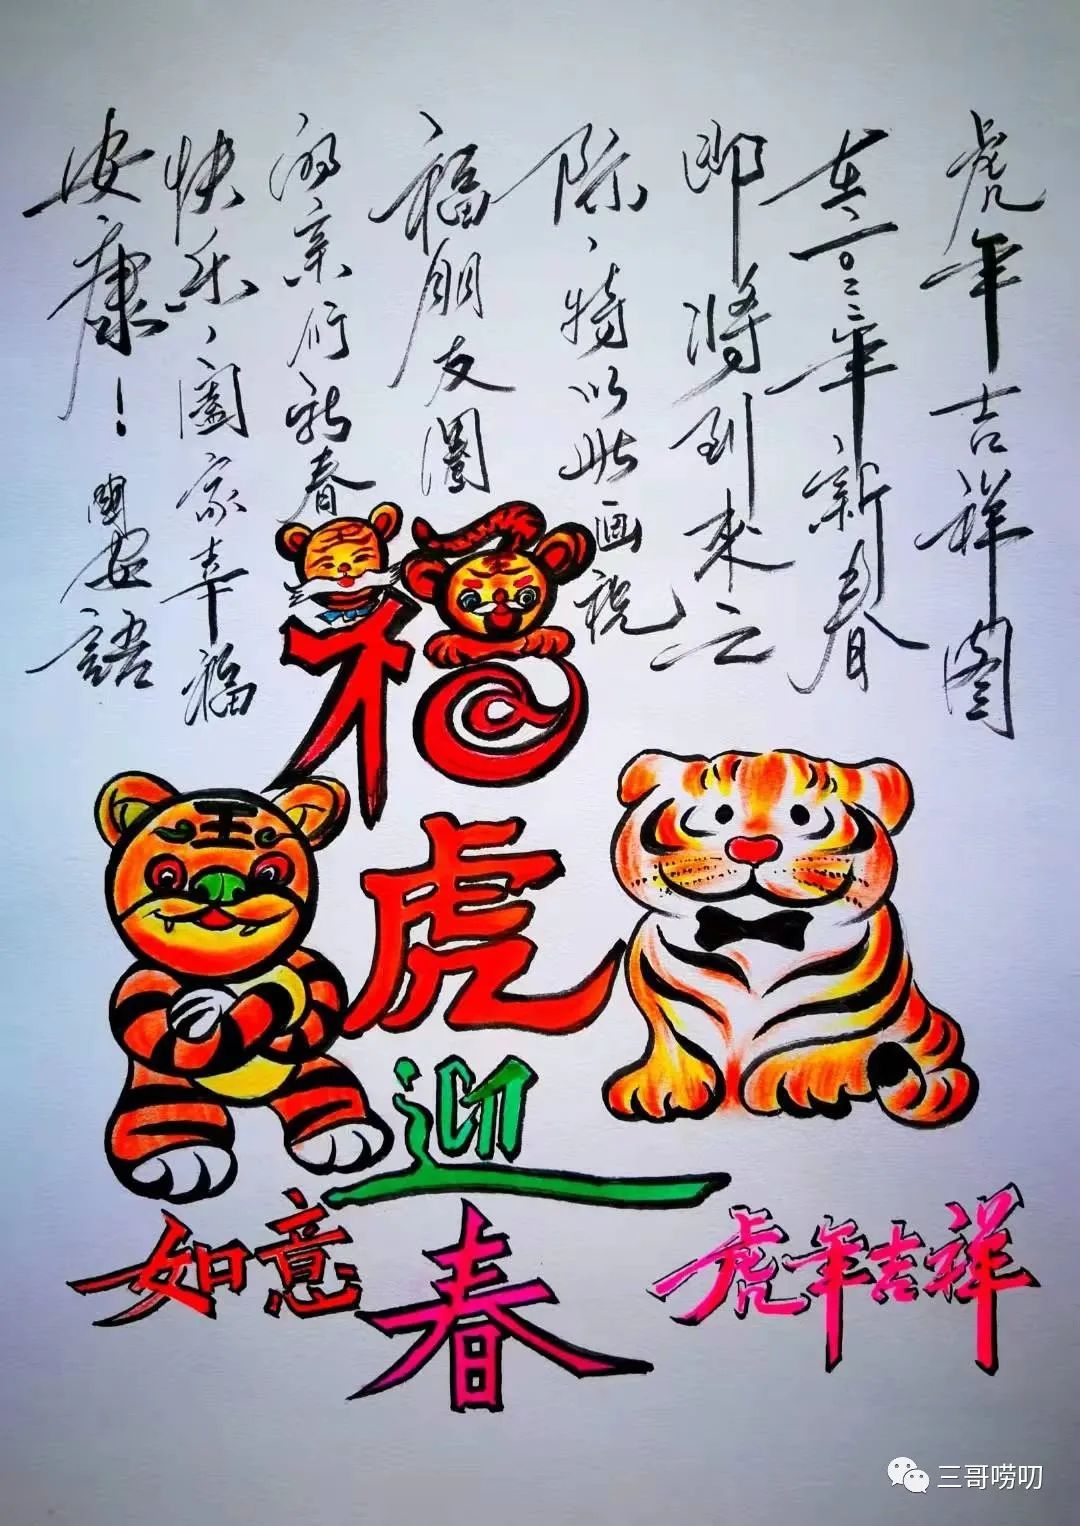 虎年吉祥图
在二〇二二年新春
即将到来之
际、特以此画祝
福朋友圈
的亲们新春
快乐、阖家幸福
安康！
福
虎
迎
春
如意
虎年吉祥
三哥唠叨